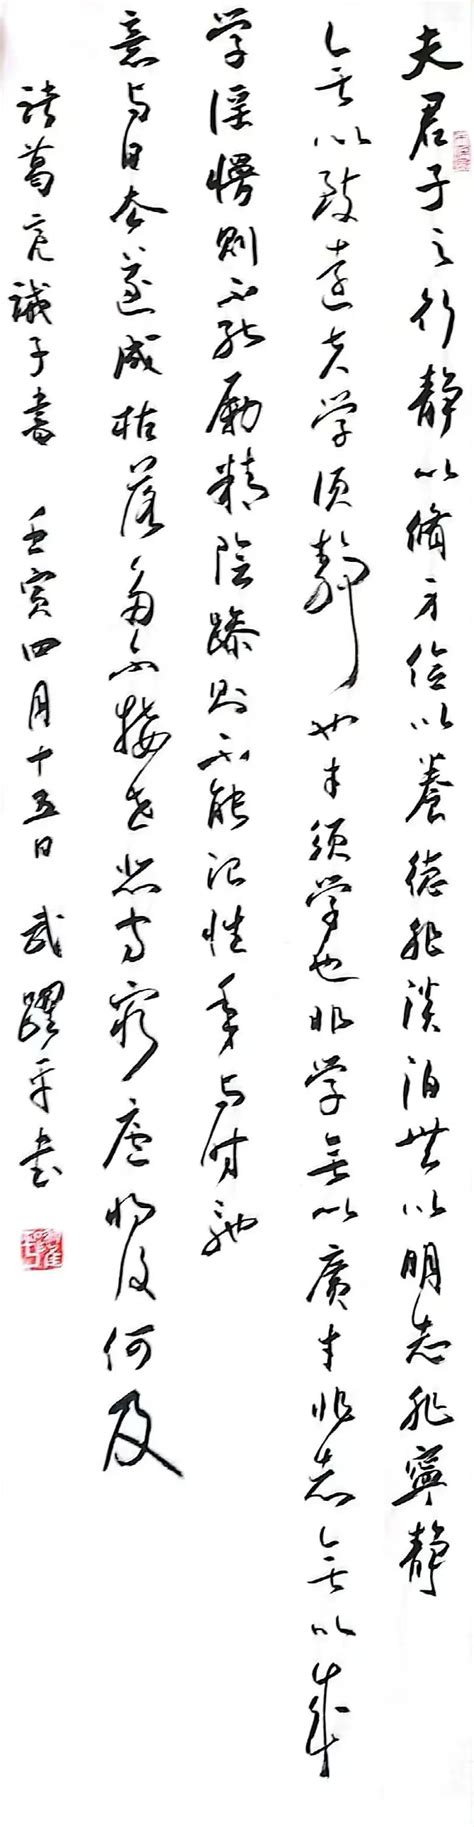 夫君子之行静以脩身俭以养德非淡泊無以明志非寧静
无以致遠夫学須静也才須学也非学無以廣才非志无以成
学淫慢则不能励精险躁则不能治性年与时馳
意与日去遂成枯落多不接世悲守窮廬将復何及
諸葛亮誡子書 壬寅四月十五日 武躍平书